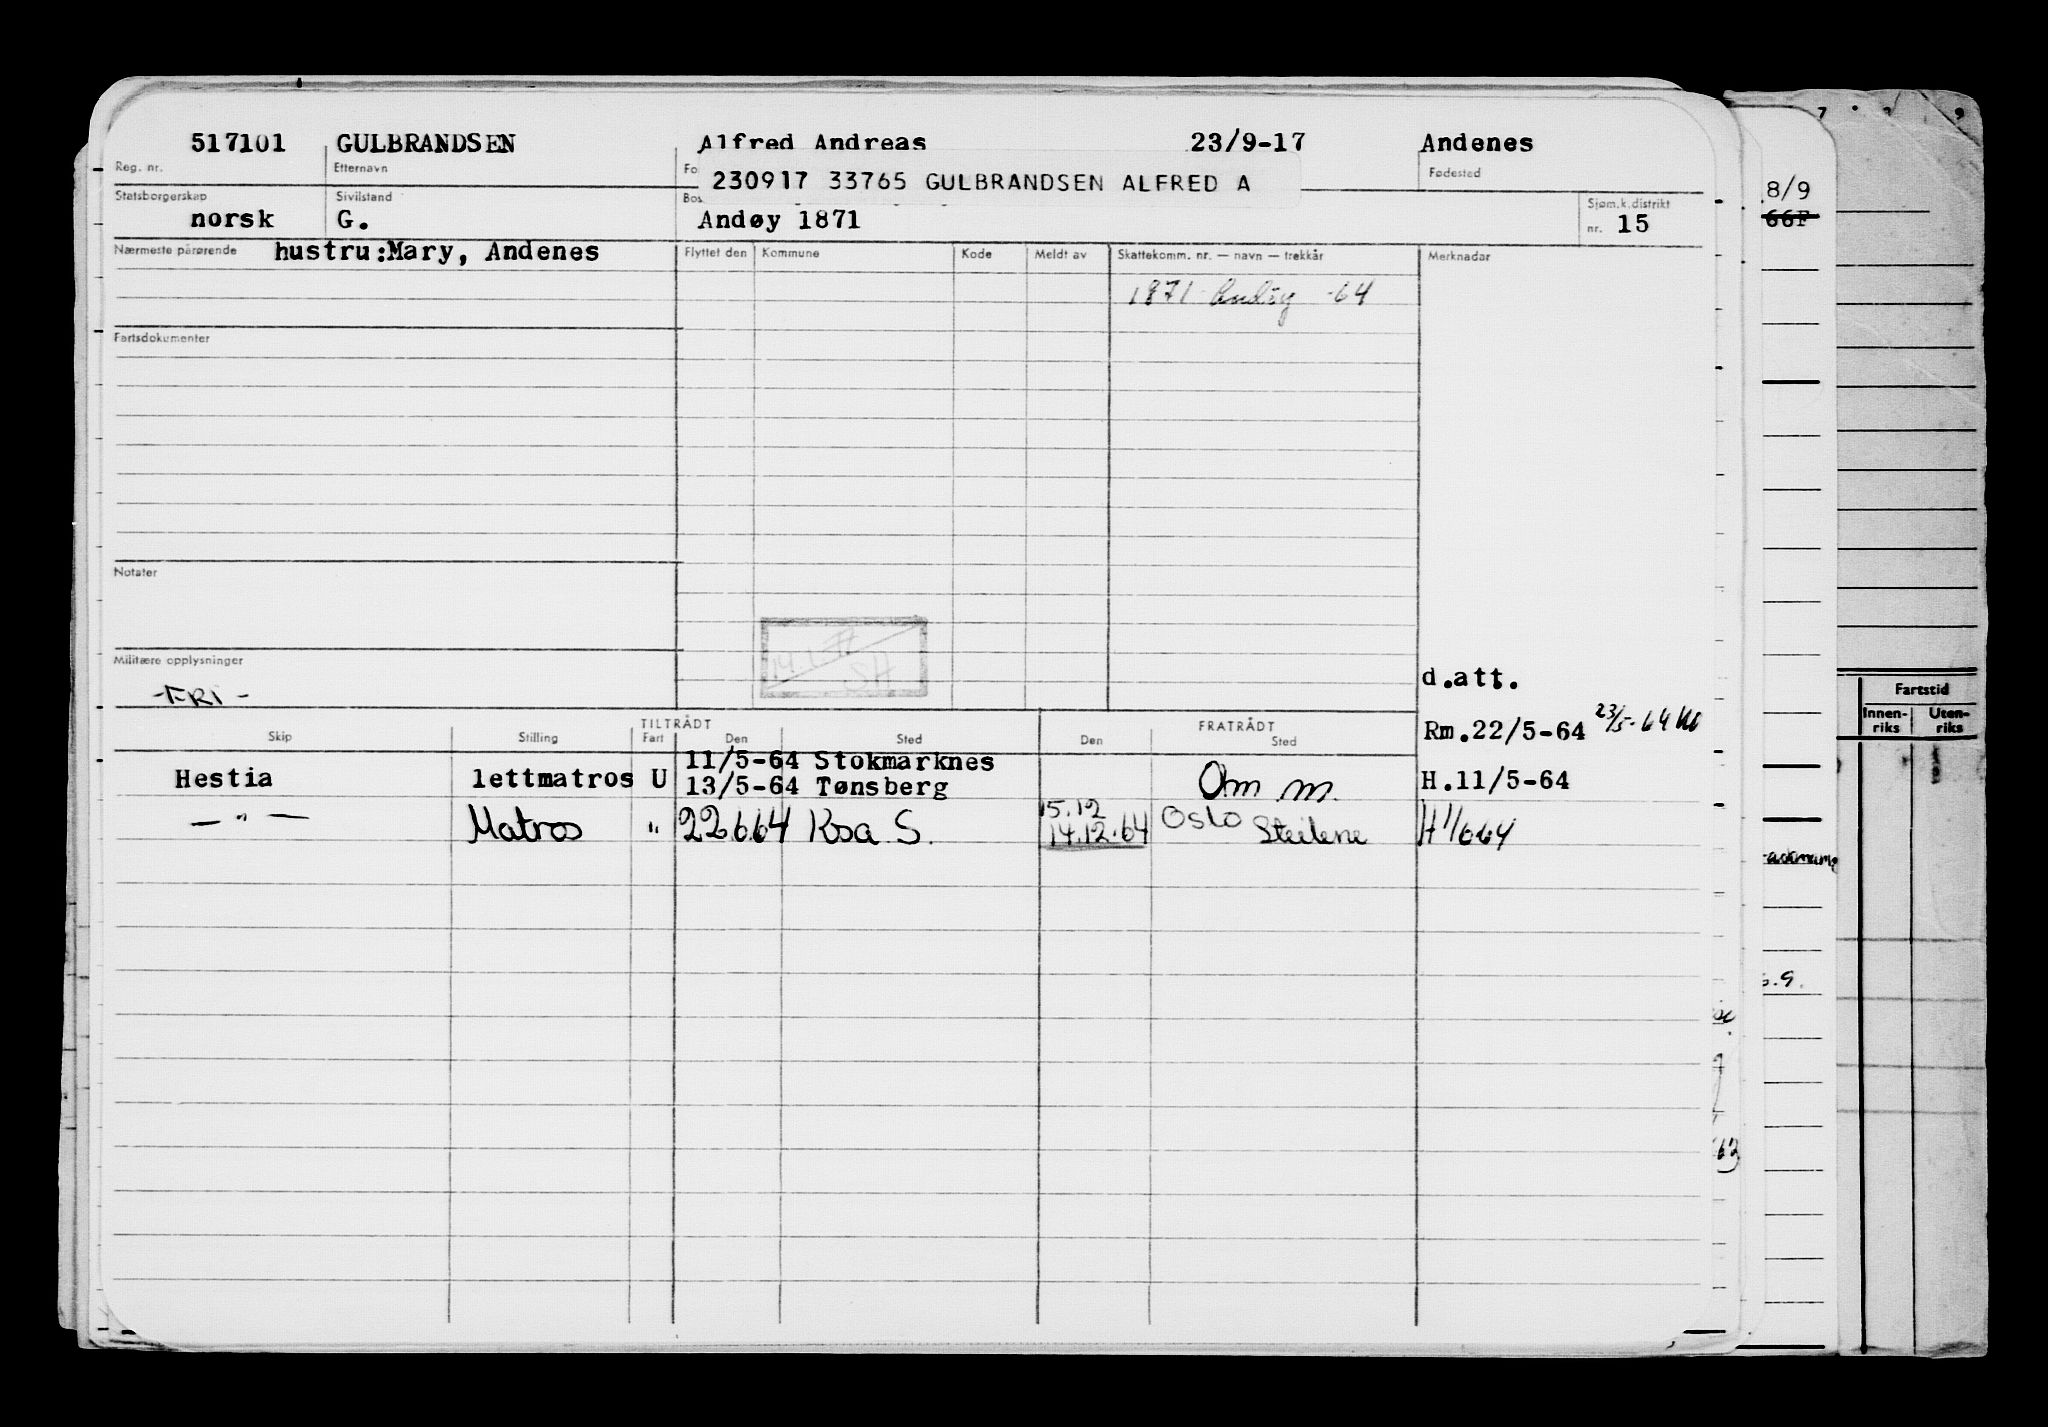 517101 GULBRANDSEN Alfred Andreas 23/9-17 Andenes
Reg. nr. Etternavn Fo Fødested
230917 33765 GULBRANDSEN ALFRED A
Statsborgerskap Sivilstand Bos Sjøm.k.distrikt
norsk G. Andøy 1871 nr. 15
Nærmeste pårørende hustru:Mary, Andenes Flyttet den Kommune Kode Meldt av Skattekomm. nr. — navn — trekkår Merknader
1871 Andøy -64
Fartsdokumenter
Notater
Militære opplysninger
-FRI-
d.att.
TILTRÅDT FRATRÅDT Rm.22/5-64 23/5-64
Skip Stilling Fart Den Sted Den Sted
11/5-64 Stokmarknes
Hestia lettmatros U 13/5-64 Tønsberg Om m. H.11/5-64
15.12 Oslo
— " — Matros " 22664 Ksa S. 14.12.64 Steilene H 1/664
8/9
66F
7 8 9
Fartstid
Innen-riks Uten-riks
63